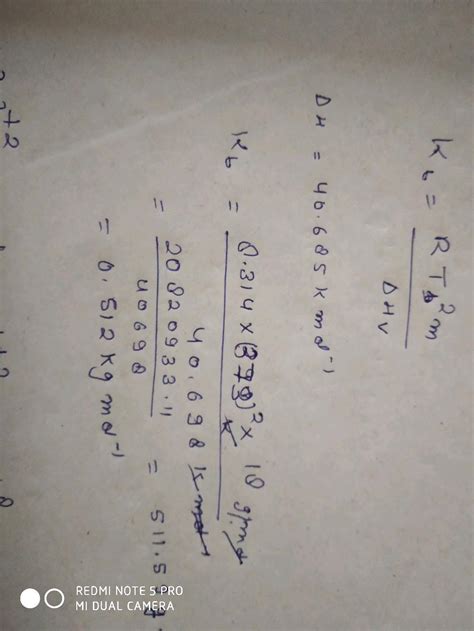 K_b = R T_b^2 m / ΔHv
ΔH = 40.685 K mol^-1
K_b = 8.314 × (373)^2 × 18 g/mol
40.698 k mol
= 20820933.11 / 40698 = 511.597
= 0.512 Kg mol^-1
+2
REDMI NOTE 5 PRO
MI DUAL CAMERA